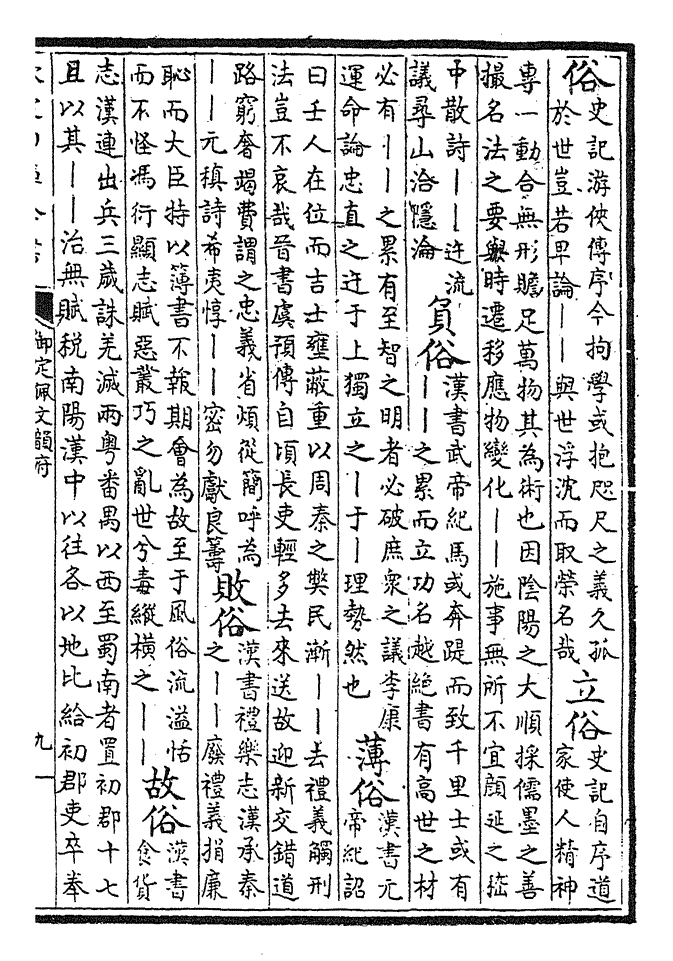 俗
史記游俠傳序今拘學或抱咫尺之義久孤
於世豈若卑論丨丨與世浮沈而取榮名哉
立俗
史記自序道
家使人精神
專一動合無形贍足萬物其為術也因陰陽之大順採儒墨之善
撮名法之要與時遷移應物變化丨丨施事無所不宜顏延之嵇
中散詩丨丨迕流
議尋山洽隱淪
負俗
漢書武帝紀馬或奔踶而致千里士或有
丨丨之累而立功名越絕書有高世之材
必有丨丨之累有至智之明者必破庶衆之議李康
運命論忠直之迕于上獨立之丨于丨理勢然也
薄俗
漢書元
帝紀詔
曰壬人在位而吉士壅蔽重以周秦之弊民漸丨丨去禮義觸刑
法豈不哀哉晉書虞預傳自頃長吏輕多去來送故迎新交錯道
路窮奢竭費謂之忠義省煩從簡呼為
丨丨元稹詩希夷惇丨丨密勿獻良籌
敗俗
漢書禮樂志漢承秦
之丨丨廢禮義捐廉
恥而大臣特以簿書不報期會為故至于風俗流溢恬
而不怪馮衍顯志賦惡叢巧之亂世兮毒縱橫之丨丨
故俗
漢書
食貨
志漢連出兵三歲誅羌滅兩粵番禺以西至蜀南者置初郡十七
且以其丨丨治無賦稅南陽漢中以往各以地比給初郡吏卒奉
御定佩文韻府
九一